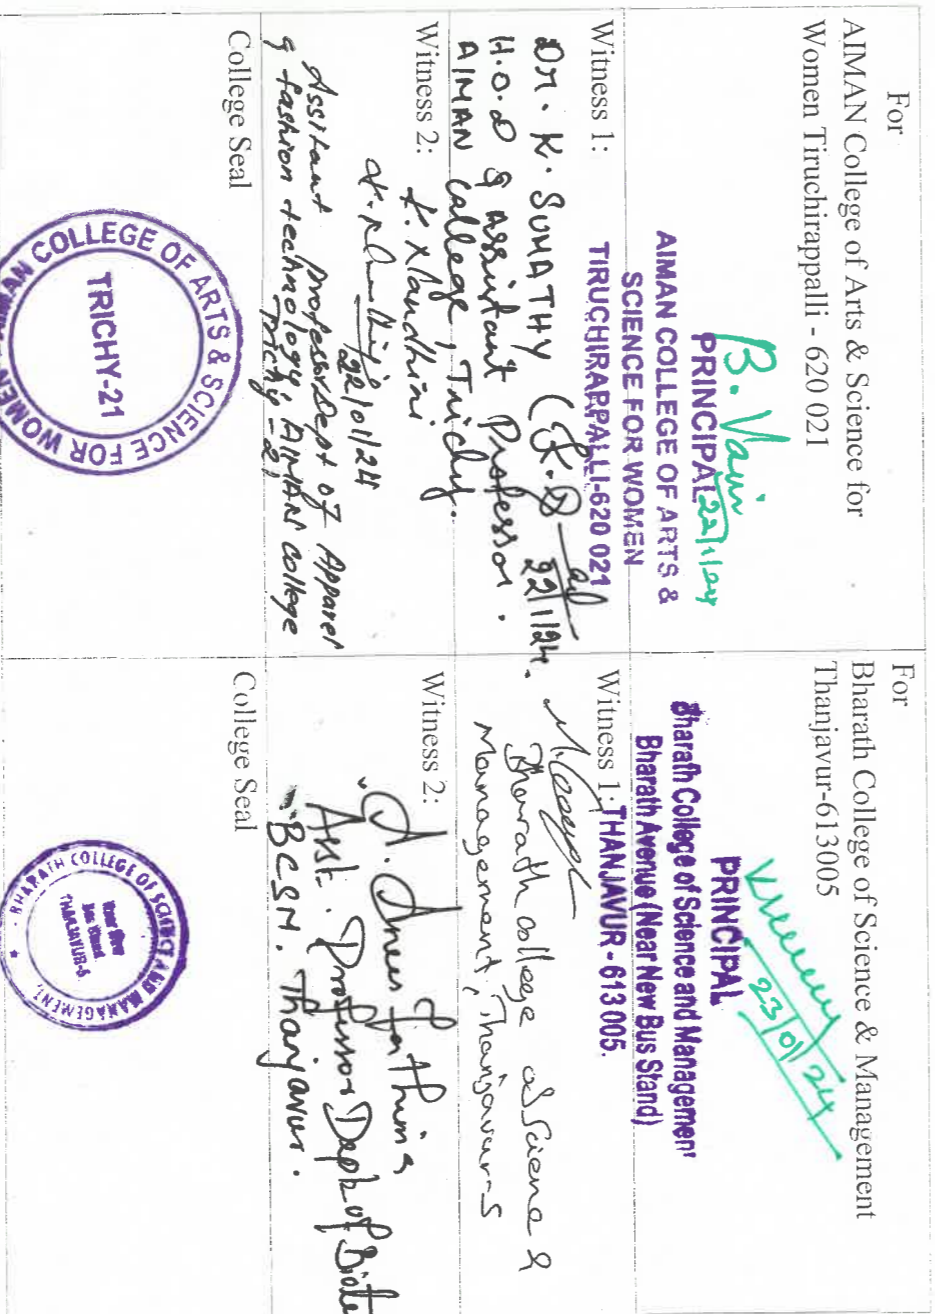 For
AIMAN College of Arts & Science for
Women Tiruchirappalli - 620 021
B. Vani
22/1/24
PRINCIPAL
AIMAN COLLEGE OF ARTS &
SCIENCE FOR WOMEN
TIRUCHIRAPPALLI-620 021
Witness 1:
Dr. K. SUMATHY
22/1/24.
H.O.D & Assistant Professor.
AIMAN College, Trichy.
Witness 2:
22/01/24
Assitant professor Dept of Apparel
& fashion technology, AIMAN college
Trichy-21
College Seal
AIMAN COLLEGE OF ARTS & SCIENCE FOR WOMEN
TRICHY-21
For
Bharath College of Science & Management
Thanjavur-613005
23/01/24
PRINCIPAL
Bharath College of Science and Management
Bharath Avenue (Near New Bus Stand)
THANJAVUR - 613 005.
Witness 1:
Bharath college of Science &
Management, Thanjavur-5
Witness 2:
Asst. Professor Dept of
BCSM. Thanjavur.
College Seal
BHARATH COLLEGE OF SCIENCE AND MANAGEMENT
Near New
Bus Stand
THANJAVUR-5.